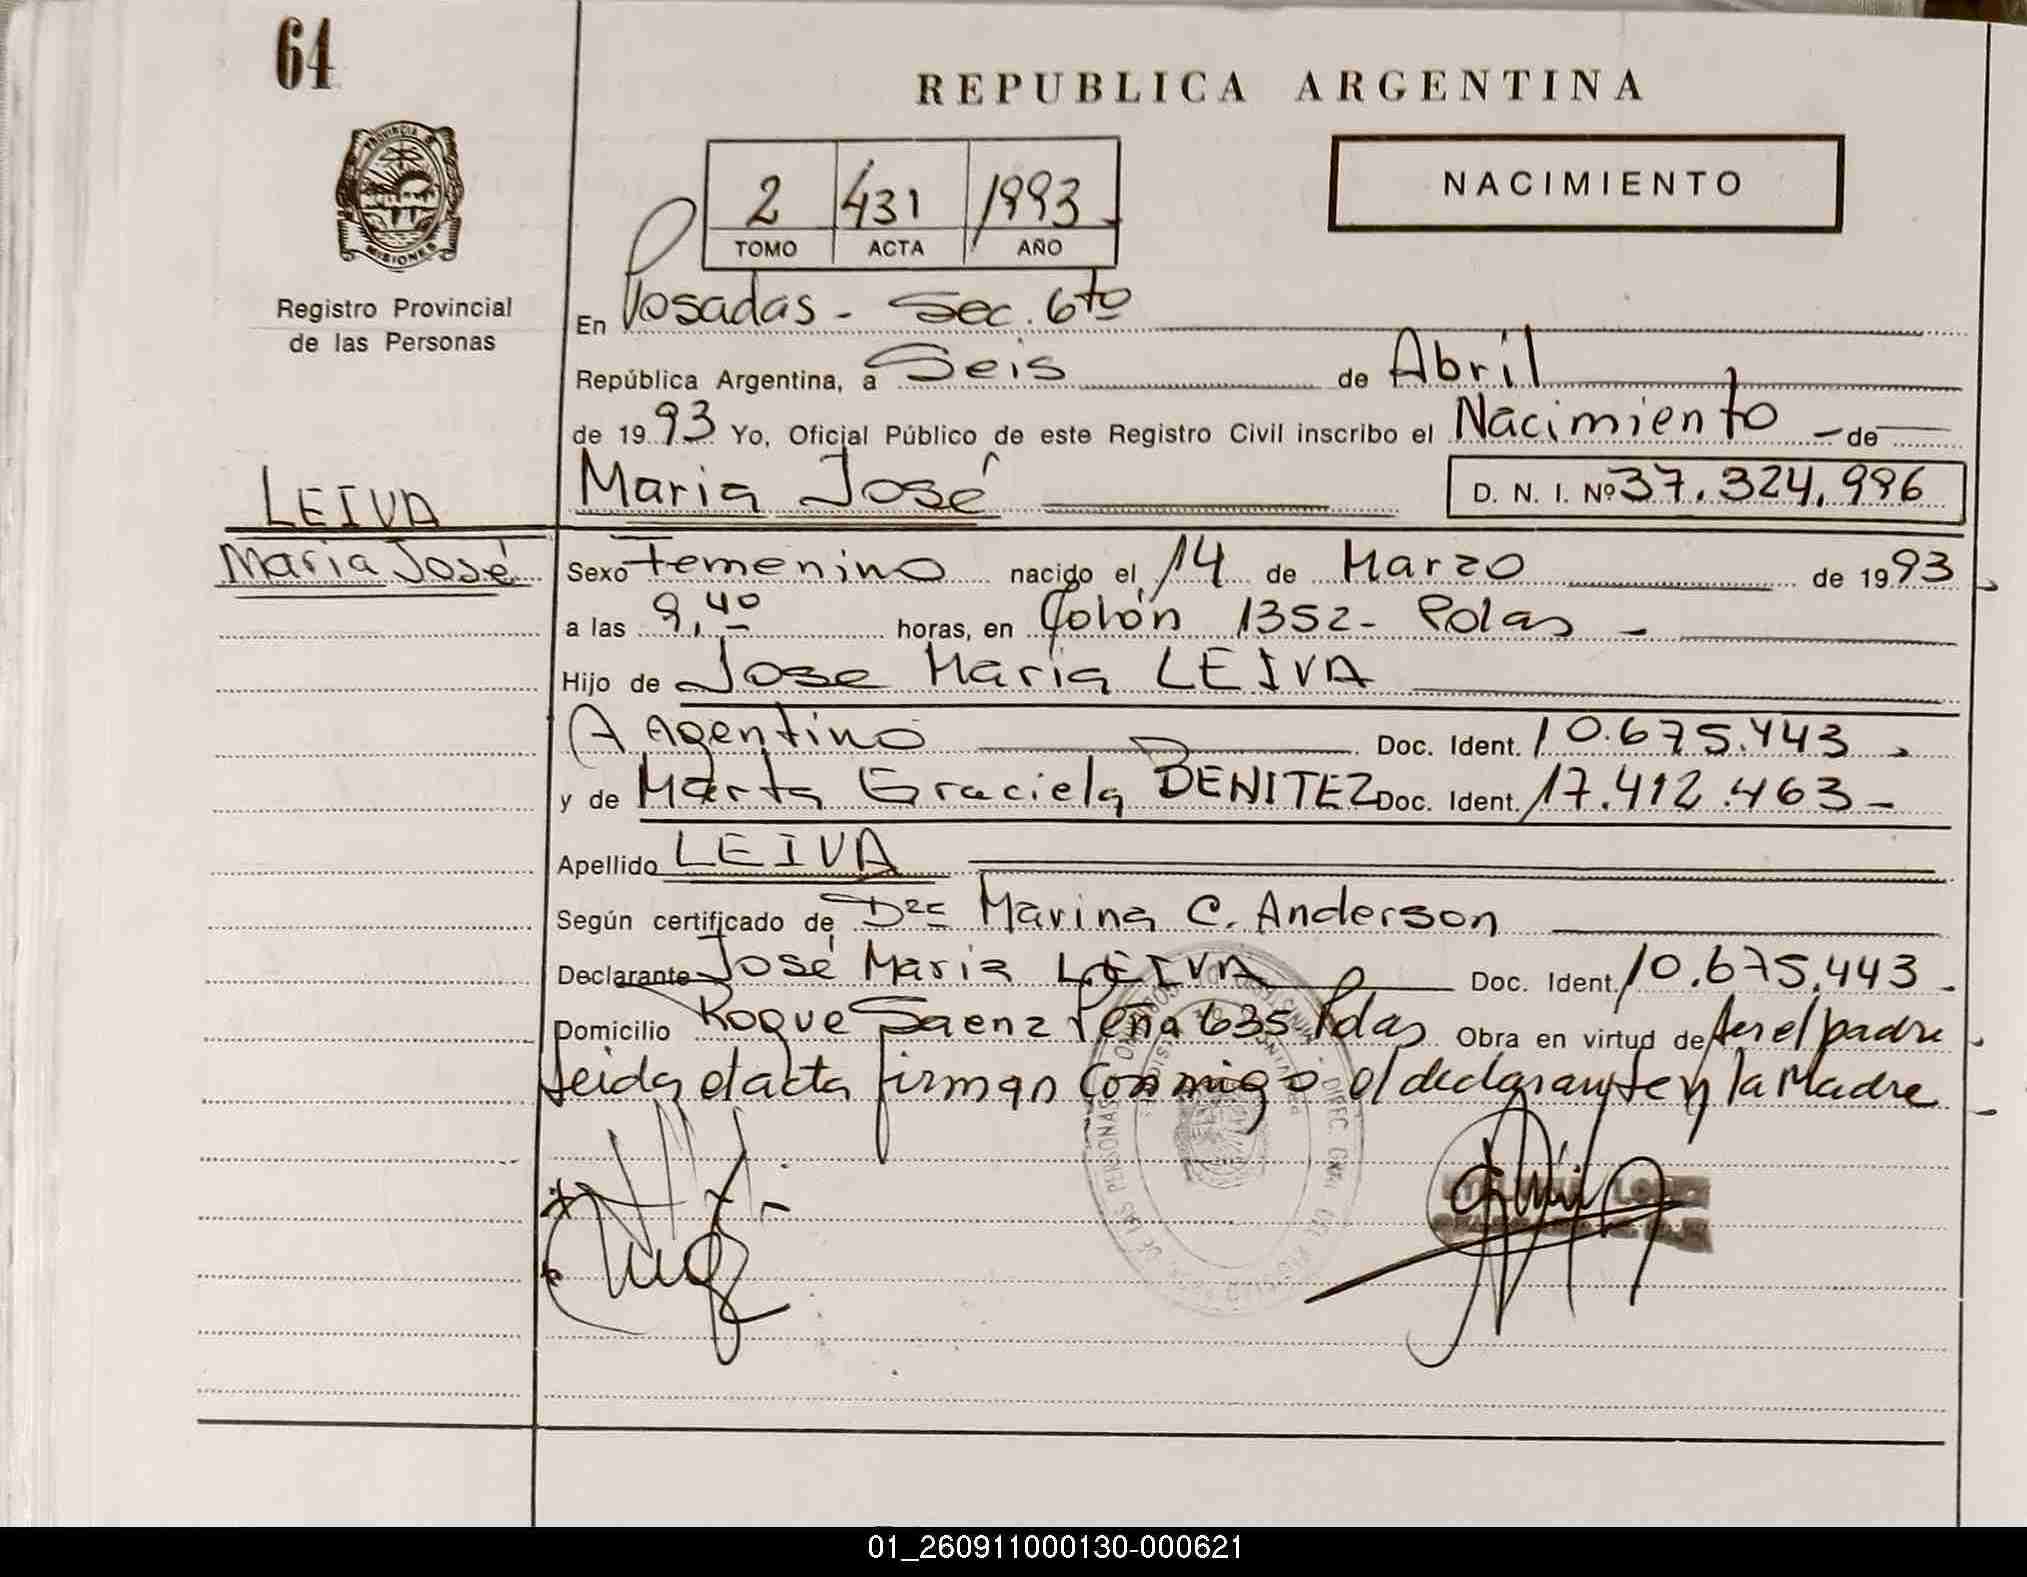 64
REPUBLICA ARGENTINA
PROVINCIA
MISIONES
NACIMIENTO
2 431 1993
TOMO ACTA AÑO
Registro Provincial
de las Personas
En Posadas - Sec. 6to
República Argentina, a Seis de Abril
de 1993 Yo, Oficial Público de este Registro Civil inscribo el Nacimiento - de
Maria José D. N. I. Nº 37.324.996
LEIVA
Maria José
Sexo Femenino nacido el 14 de Marzo de 1993
a las 9,40 horas, en Colón 1352 - Pdas -
Hijo de Jose Maria LEIVA
Agentino Doc. Ident. 10.675.443
y de Marta Graciela BENITEZ Doc. Ident. 17.412.463 -
Apellido LEIVA
Según certificado de Dra Marina C. Anderson
Declarante José Maria LEIVA Doc. Ident. 10.675.443 -
Domicilio Roque Saenz Peña 635 Pdas Obra en virtud de ser el padre
leida el acta firman conmigo el declarante y la Madre
01_260911000130-000621